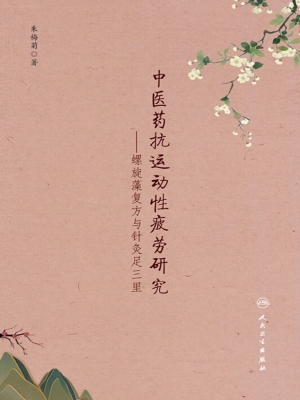 朱梅菊◎著
中医药抗运动性疲劳研究
——螺旋藻复方与针灸足三里
人民卫生出版社